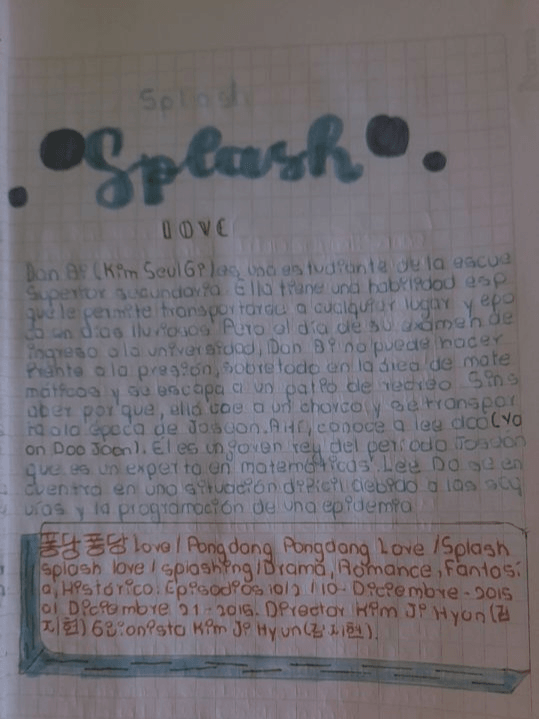 Splash
Splash
LOVE
Dan Bi (Kim Seul Gi) es una estudiante de la escue
superior secundaria. Ella tiene una habilidad esp
que le permite transportarse a cualquier lugar y epo
ca en días lluviosos. Pero al día de su examen de
ingreso a la universidad, Dan Bi no puede hacer
frente a la presión, sobre todo en la área de mate
máticas y se escapa a un patio de recreo. Sins
aber por que, ella cae a un charco y se transpor
ta a la época de Joseon. Ahí, conoce a lee dco (Yo
on Doo Joon). Él es un joven rey del período Joseon
que es un experto en matemáticas. Lee Do se en
cuentra en una situación difícil debido a las seq
uías y la programación de una epidemia
퐁당퐁당 Love / Pongdang Pongdang Love / Splash
splash love / splashing / Drama, Romance, Fantasí
a, Histórico. Episodios 10/2 / 10- Diciembre - 2015
al Diciembre 21 - 2015. Director Kim Ji Hyun (김
지현) Kim Ji Hyun (김지현).